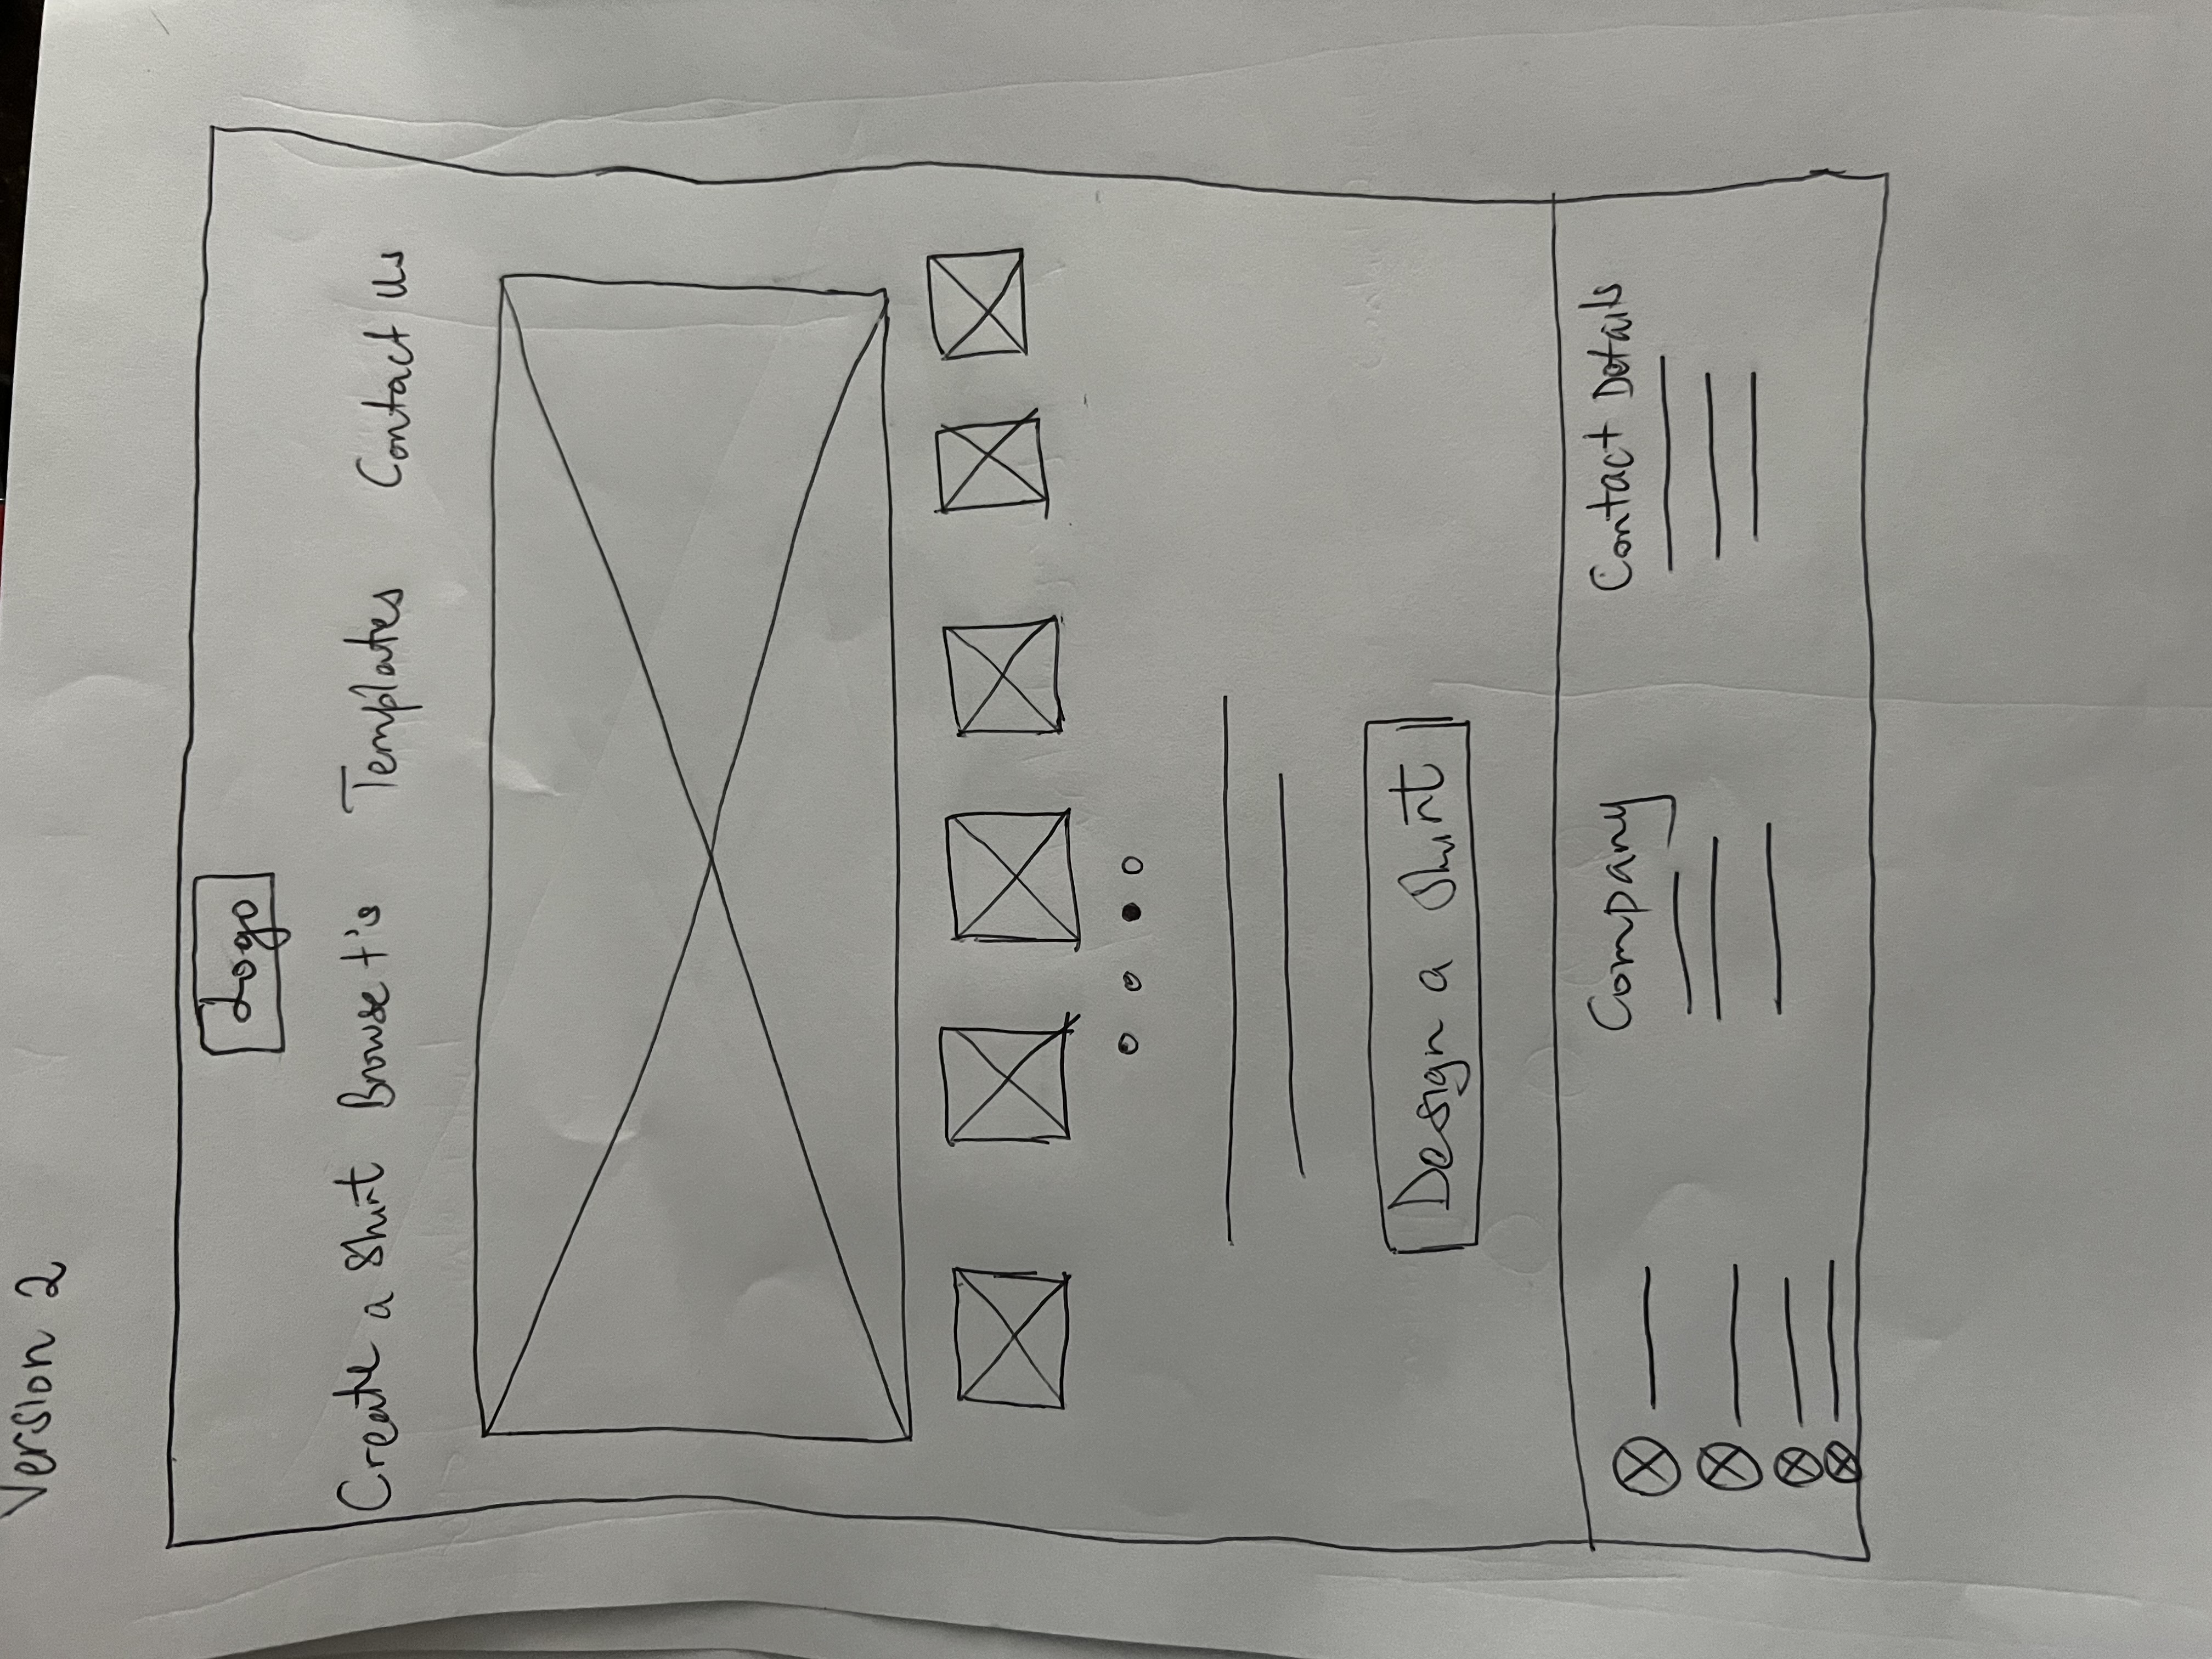 Version 2
Logo
Create a Shirt Browse t's Templates Contact Us
Design a Shirt
Company Contact Details